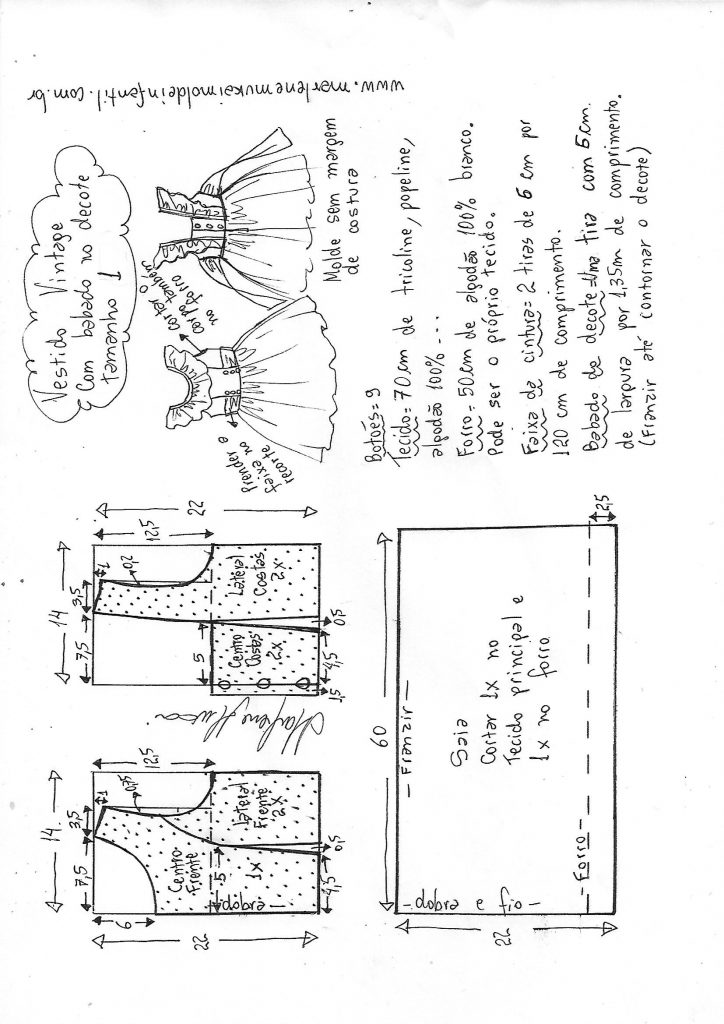 www.marlenemukaimoldeinfantil.com.br
Vestido Vintage
Com babado no decote
tamanho 1
cortar o
corpo também
no forro
Prender a
faixa no
recorte
Molde sem margem
de costura
Botões=9
Tecido=70cm de tricoline, popeline,
algodão 100%...
Forro=50cm de algodão 100% branco.
Pode ser o próprio tecido.
Faixa da cintura=2 tiras de 6 cm por
120 cm de comprimento.
Babado de decote=Uma tira com 5cm.
de largura por 1,35m de comprimento.
(Franzir até contornar o decote)
14
7,5
3,5
1
0,75
12,5
6
22
Centro
Frente
1x
Lateral
Frente
2x
5
dobra
4,5
0,5
14
7,5
3,5
1
02
12,5
22
Lateral
Costas
2x
Centro
Costas
2x
5
1,5
4,5
0,5
60
-Franzir-
Saia
Cortar 1x no
Tecido principal e
1x no forro
-dobra e fio-
-Forro-
22
2,5